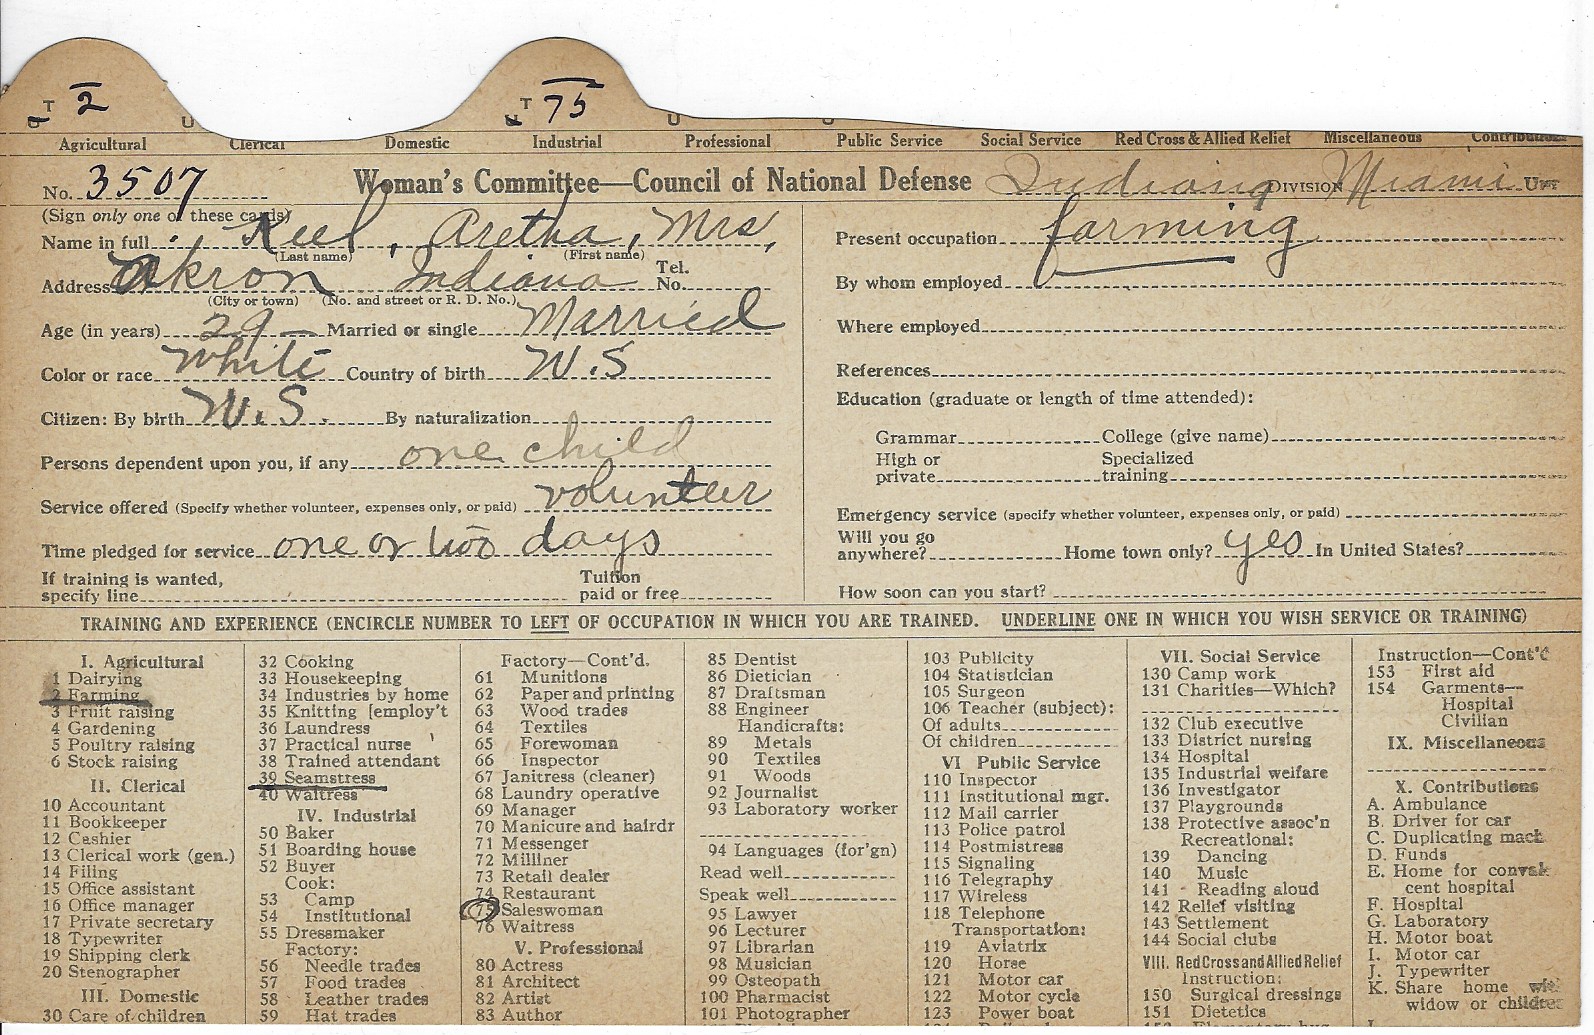 T 2 T 75
U U U U
Agricultural Clerical Domestic Industrial Professional Public Service Social Service Red Cross & Allied Relief Miscellaneous Contributions
No. 3507 Woman's Committee—Council of National Defense Indiana DIVISION Miami UNIT
(Sign only one of these cards)
Name in full Keel, Aretha, Mrs,
(Last name) (First name)
Address Akron Indiana Tel. No.
(City or town) (No. and street or R. D. No.)
Age (in years) 29 Married or single Married
Color or race White Country of birth U.S
Citizen: By birth U.S. By naturalization
Persons dependent upon you, if any one child
Service offered (Specify whether volunteer, expenses only, or paid) volunteer
Time pledged for service one or two days
If training is wanted, specify line Tuition paid or free
Present occupation farming
By whom employed
Where employed
References
Education (graduate or length of time attended):
Grammar College (give name)
High or private Specialized training
Emergency service (specify whether volunteer, expenses only, or paid)
Will you go anywhere? Home town only? yes In United States?
How soon can you start?
TRAINING AND EXPERIENCE (ENCIRCLE NUMBER TO LEFT OF OCCUPATION IN WHICH YOU ARE TRAINED. UNDERLINE ONE IN WHICH YOU WISH SERVICE OR TRAINING)
I. Agricultural
1 Dairying
2 Farming
3 Fruit raising
4 Gardening
5 Poultry raising
6 Stock raising
II. Clerical
10 Accountant
11 Bookkeeper
12 Cashier
13 Clerical work (gen.)
14 Filing
15 Office assistant
16 Office manager
17 Private secretary
18 Typewriter
19 Shipping clerk
20 Stenographer
III. Domestic
30 Care of children
32 Cooking
33 Housekeeping
34 Industries by home
35 Knitting [employ't
36 Laundress
37 Practical nurse
38 Trained attendant
39 Seamstress
40 Waitress
IV. Industrial
50 Baker
51 Boarding house
52 Buyer
Cook:
53 Camp
54 Institutional
55 Dressmaker
Factory:
56 Needle trades
57 Food trades
58 Leather trades
59 Hat trades
Factory—Cont'd.
61 Munitions
62 Paper and printing
63 Wood trades
64 Textiles
65 Forewoman
66 Inspector
67 Janitress (cleaner)
68 Laundry operative
69 Manager
70 Manicure and hairdr
71 Messenger
72 Milliner
73 Retail dealer
74 Restaurant
75 Saleswoman
76 Waitress
V. Professional
80 Actress
81 Architect
82 Artist
83 Author
85 Dentist
86 Dietician
87 Draftsman
88 Engineer
Handicrafts:
89 Metals
90 Textiles
91 Woods
92 Journalist
93 Laboratory worker
94 Languages (for'gn)
Read well
Speak well
95 Lawyer
96 Lecturer
97 Librarian
98 Musician
99 Osteopath
100 Pharmacist
101 Photographer
103 Publicity
104 Statistician
105 Surgeon
106 Teacher (subject):
Of adults
Of children
VI Public Service
110 Inspector
111 Institutional mgr.
112 Mail carrier
113 Police patrol
114 Postmistress
115 Signaling
116 Telegraphy
117 Wireless
118 Telephone
Transportation:
119 Aviatrix
120 Horse
121 Motor car
122 Motor cycle
123 Power boat
VII. Social Service
130 Camp work
131 Charities—Which?
132 Club executive
133 District nursing
134 Hospital
135 Industrial welfare
136 Investigator
137 Playgrounds
138 Protective assoc'n
Recreational:
139 Dancing
140 Music
141 Reading aloud
142 Relief visiting
143 Settlement
144 Social clubs
VIII. Red Cross and Allied Relief
Instruction:
150 Surgical dressings
151 Dietetics
Instruction—Cont'd
153 First aid
154 Garments—
Hospital
Civilian
IX. Miscellaneous
X. Contributions
A. Ambulance
B. Driver for car
C. Duplicating mach
D. Funds
E. Home for conval
cent hospital
F. Hospital
G. Laboratory
H. Motor boat
I. Motor car
J. Typewriter
K. Share home with
widow or children